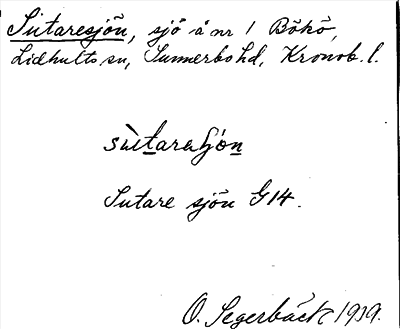 Sutaresjön, sjö å nr 1 Bökö,
Lidhults sn, Sunnerbo hd, Kronob. l.
Sutare sjön G14.
O. Segerbäck 1939.